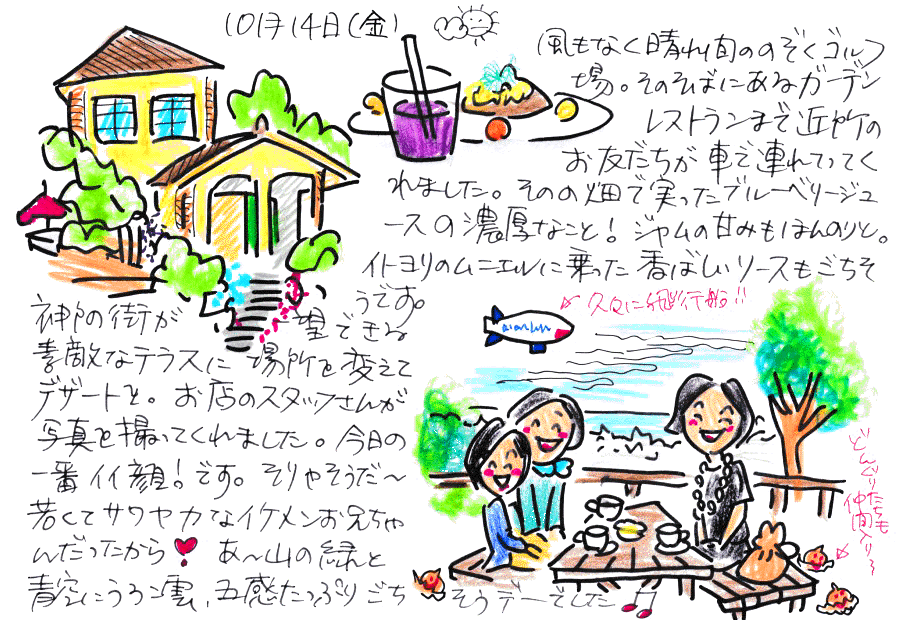 10月14日(金)
風もなく晴れ間ののぞくゴルフ
場。そのそばにあるガーデン
レストランまで近所の
お友だちが車で連れてってく
れました。そのの畑で実ったブルーベリージュ
ースの濃厚なこと!ジャムの甘みもほんのりと。
イトヨリのムニエルに乗った香ばしいソースもごちそ
うです。
神戸の街が望できる
素敵なテラスに場所を変えて
デザートと。お店のスタッフさんが
写真を撮ってくれました。今日の
一番イイ顔!です。そりゃそうだ~
若くてサワヤカなイケメンお兄ちゃ
んだったから♥ あ~山の緑と
青空にうろこ雲、五感たっぷりごち
そうデーでした♫
久々に飛行船!!
どんぐりたちも
仲間入り~